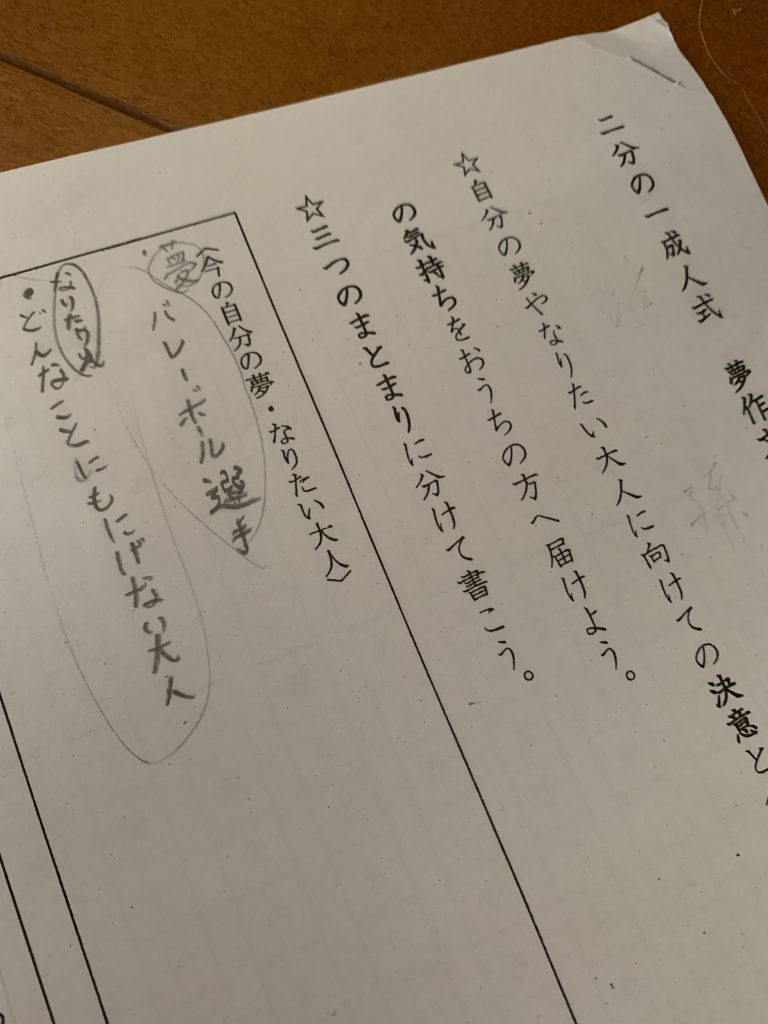 二分の一成人式 夢作
☆自分の夢やなりたい大人に向けての決意と
の気持ちをおうちの方へ届けよう。
☆三つのまとまりに分けて書こう。
〈今の自分の夢・なりたい大人〉
・夢
バレーボール選手
なりたい
・どんなことにもにげない大人
孫